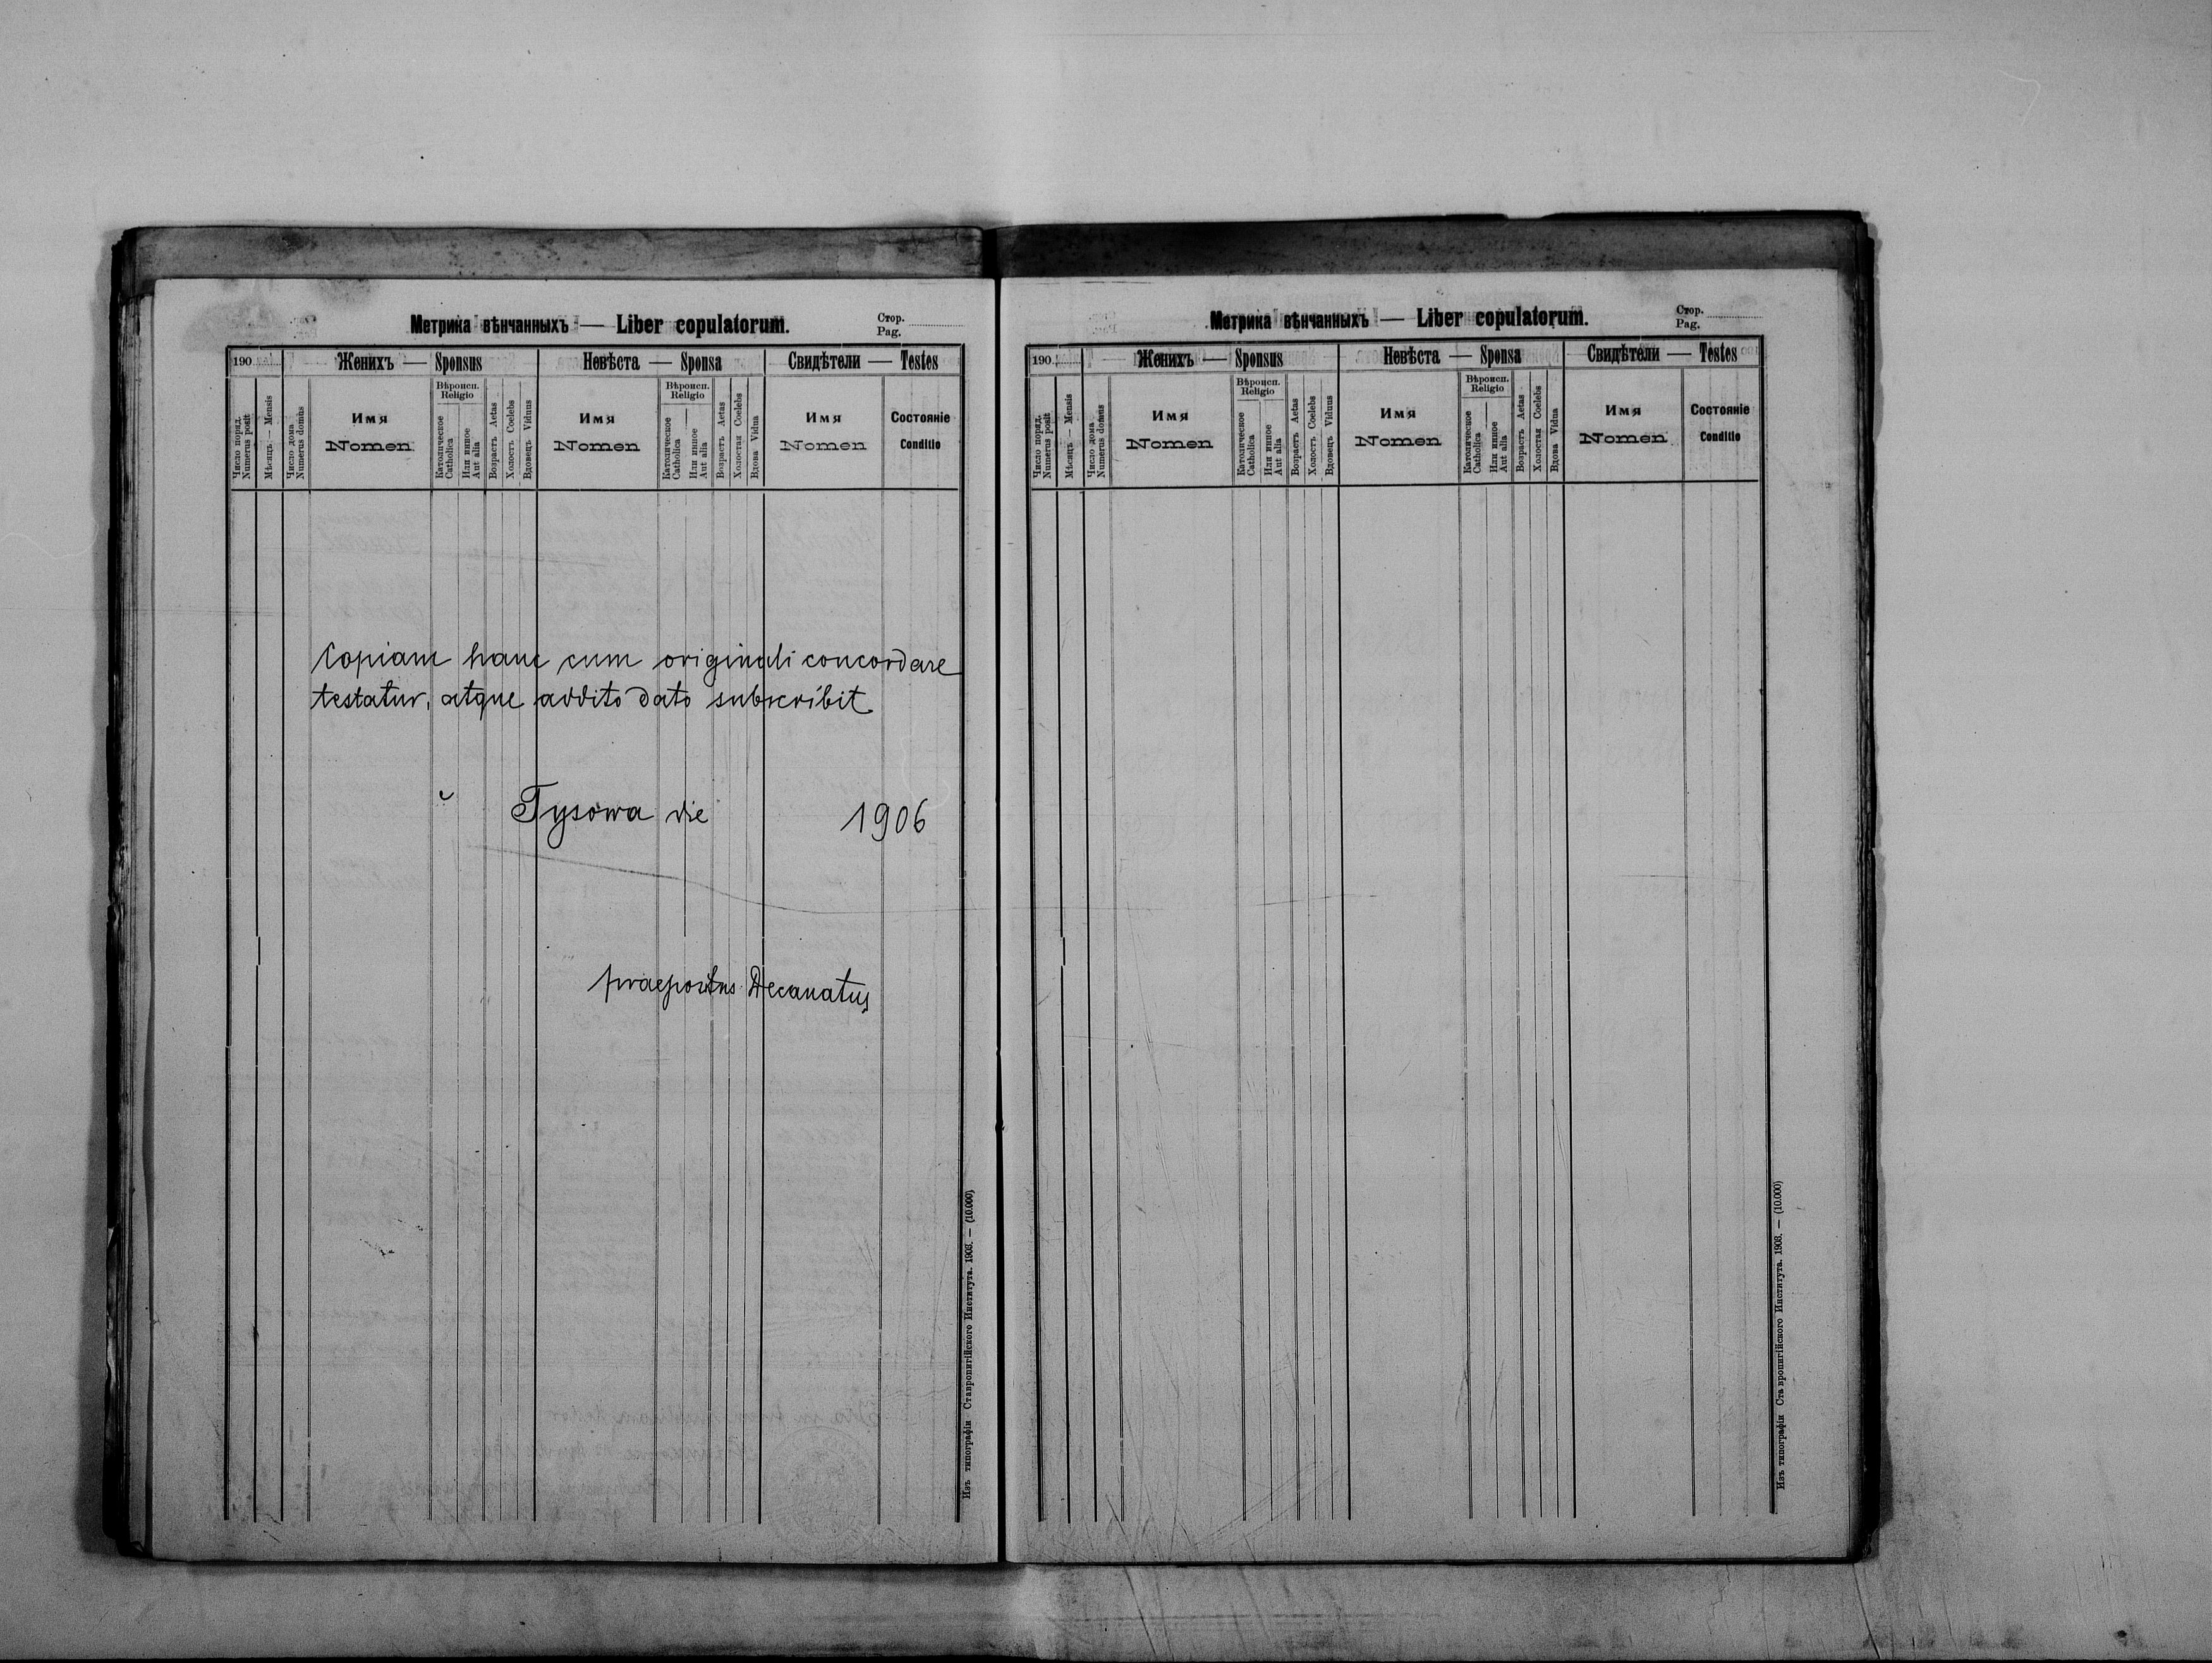 Метрика вѣнчанныхъ — Liber copulatorum.
Стор.
Pag.
190
Женихъ — Sponsus
Невѣста — Sponsa
Свидѣтели — Testes
Число поряд.
Numerus posit
Мѣсяцъ — Mensis
Число дома
Numerus domus
Имя
Nomen
Вѣроисп.
Religio
Католическое
Catholica
Или инное
Aut alia
Возрастъ Aetas
Холостъ Coelebs
Вдовецъ Viduus
Имя
Nomen
Вѣроисп.
Religio
Католическое
Catholica
Или инное
Aut alia
Возрастъ Aetas
Холостая Coelebs
Вдова Vidua
Имя
Nomen
Состояніе
Conditio
Copiam hanc cum originali concordare
testatur, atque addito dato subscribit
Tysowa die 1906
praepositus Decanatus
Изъ типографіи Ставропигійского Института. 1903. — (10.000)
Метрика вѣнчанныхъ — Liber copulatorum.
Стор.
Pag.
190
Женихъ — Sponsus
Невѣста — Sponsa
Свидѣтели — Testes
Число поряд.
Numerus posit
Мѣсяцъ — Mensis
Число дома
Numerus domus
Имя
Nomen
Вѣроисп.
Religio
Католическое
Catholica
Или инное
Aut alia
Возрастъ Aetas
Холостъ Coelebs
Вдовецъ Viduus
Имя
Nomen
Вѣроисп.
Religio
Католическое
Catholica
Или инное
Aut alia
Возрастъ Aetas
Холостая Coelebs
Вдова Vidua
Имя
Nomen
Состояніе
Conditio
Изъ типографіи Ставропигійского Института. 1903. — (10.000)